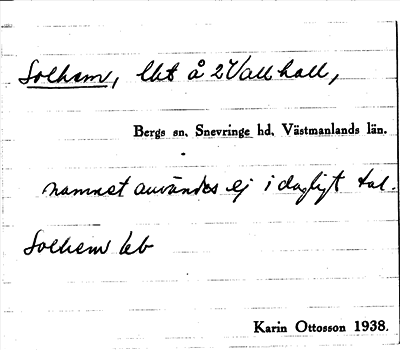 Solhem, lht å 2 Vallhall,
Bergs sn. Snevringe hd. Västmanlands län.
namnet användes ej i dagligt tal.
Solhem lb
Karin Ottosson 1938.